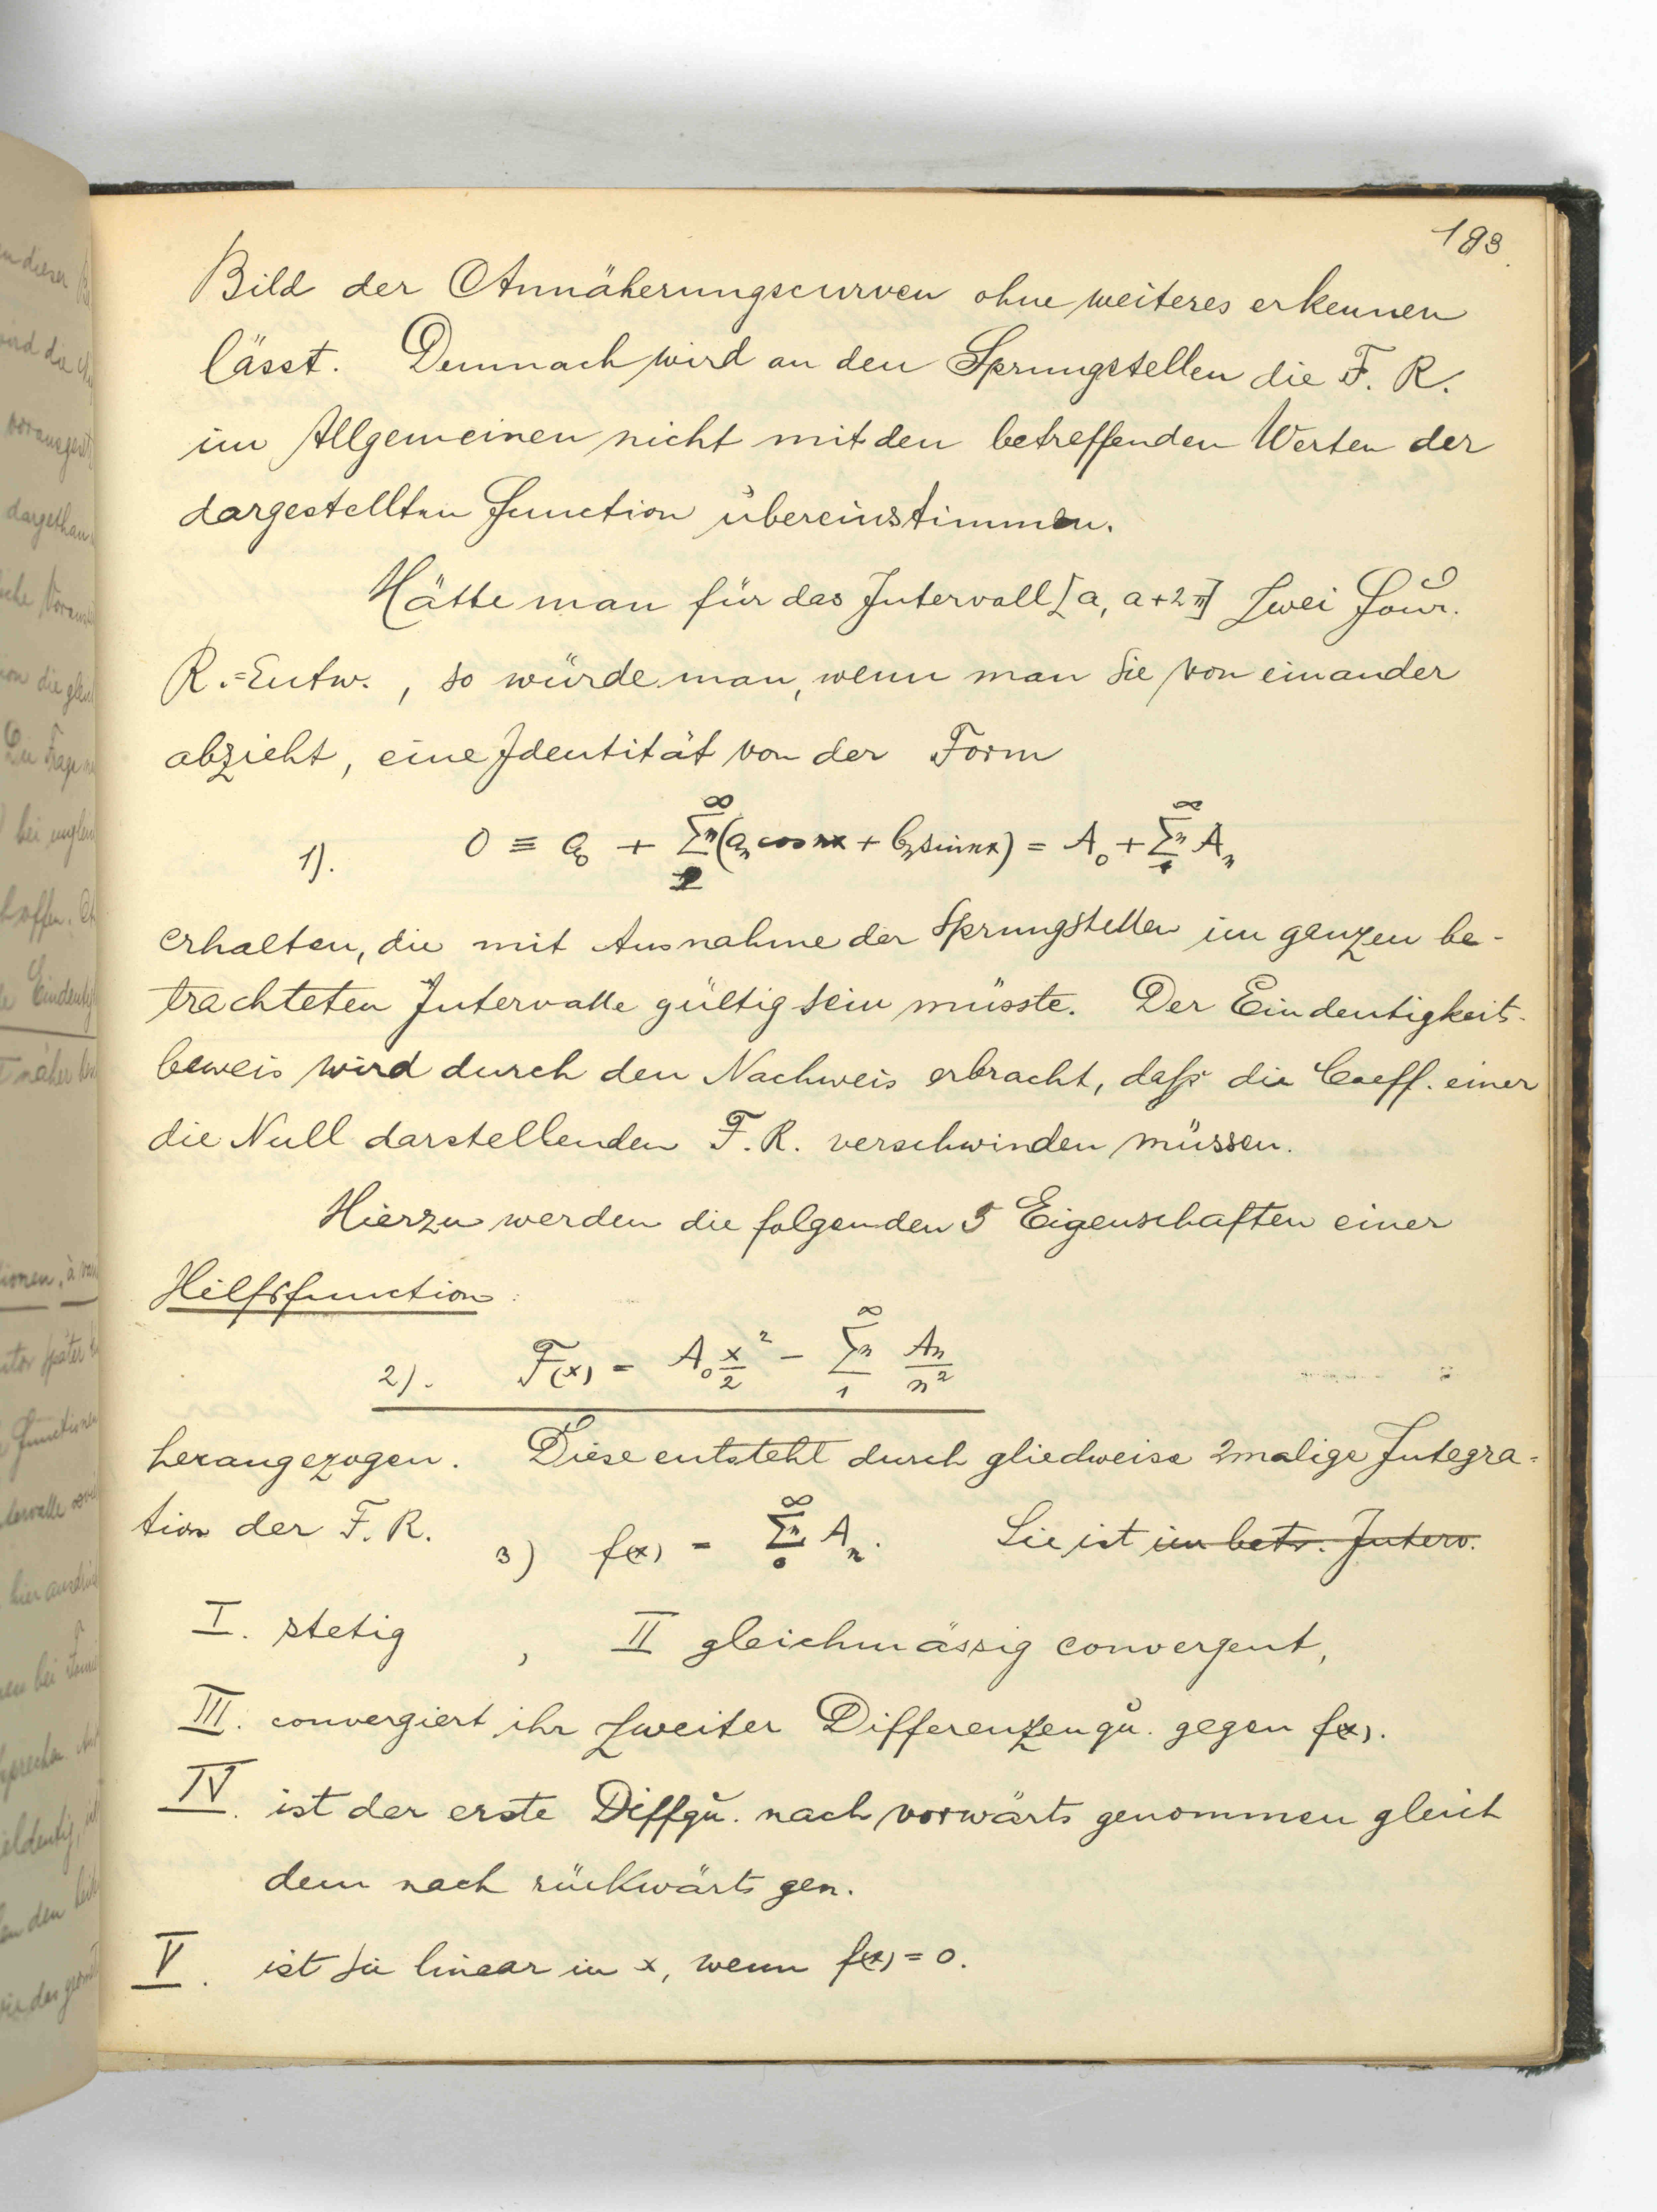 193.
Bild der Annäherungscurven ohne weiteres erkennen
lässt. Demnach wird an den Sprungstellen die F. R.
im Allgemeinen nicht mit den betreffenden Werten der
dargestellten Function übereinstimmen.
Hätte man für das Intervall [a, a+2π] zwei Four.
R.=Entw., so würde man, wenn man sie von einander
abzieht, eine Identität von der Form
1). 0 ≡ a₀ + Σₙ₁^∞ (aₙ cos nx + bₙ sin nx) = A₀ + Σₙ₁^∞ Aₙ
erhalten, die mit Ausnahme der Sprungstellen im ganzen be-
trachteten Intervalle gültig sein müsste. Der Eindeutigkeits-
beweis wird durch den Nachweis erbracht, daß die Coeff. einer
die Null darstellenden F. R. verschwinden müssen.
Hierzu werden die folgenden 5 Eigenschaften einer
Hilfsfunction:
2). F(x) = A₀ x²/2 − Σₙ₁^∞ Aₙ/n²
herangezogen. Diese entsteht durch gliedweise 2malige Integra=
tion der F. R. 3) f(x) = Σₙ₀^∞ Aₙ. Sie ist im betr. Interv.
I. stetig, II gleichmässig convergent,
III. convergiert ihr zweiter Differenzenqu. gegen f(x).
IV. ist der erste Diffqu. nach vorwärts genommen gleich
dem nach rückwärts gen.
V. ist sie linear in x, wenn f(x) = 0.